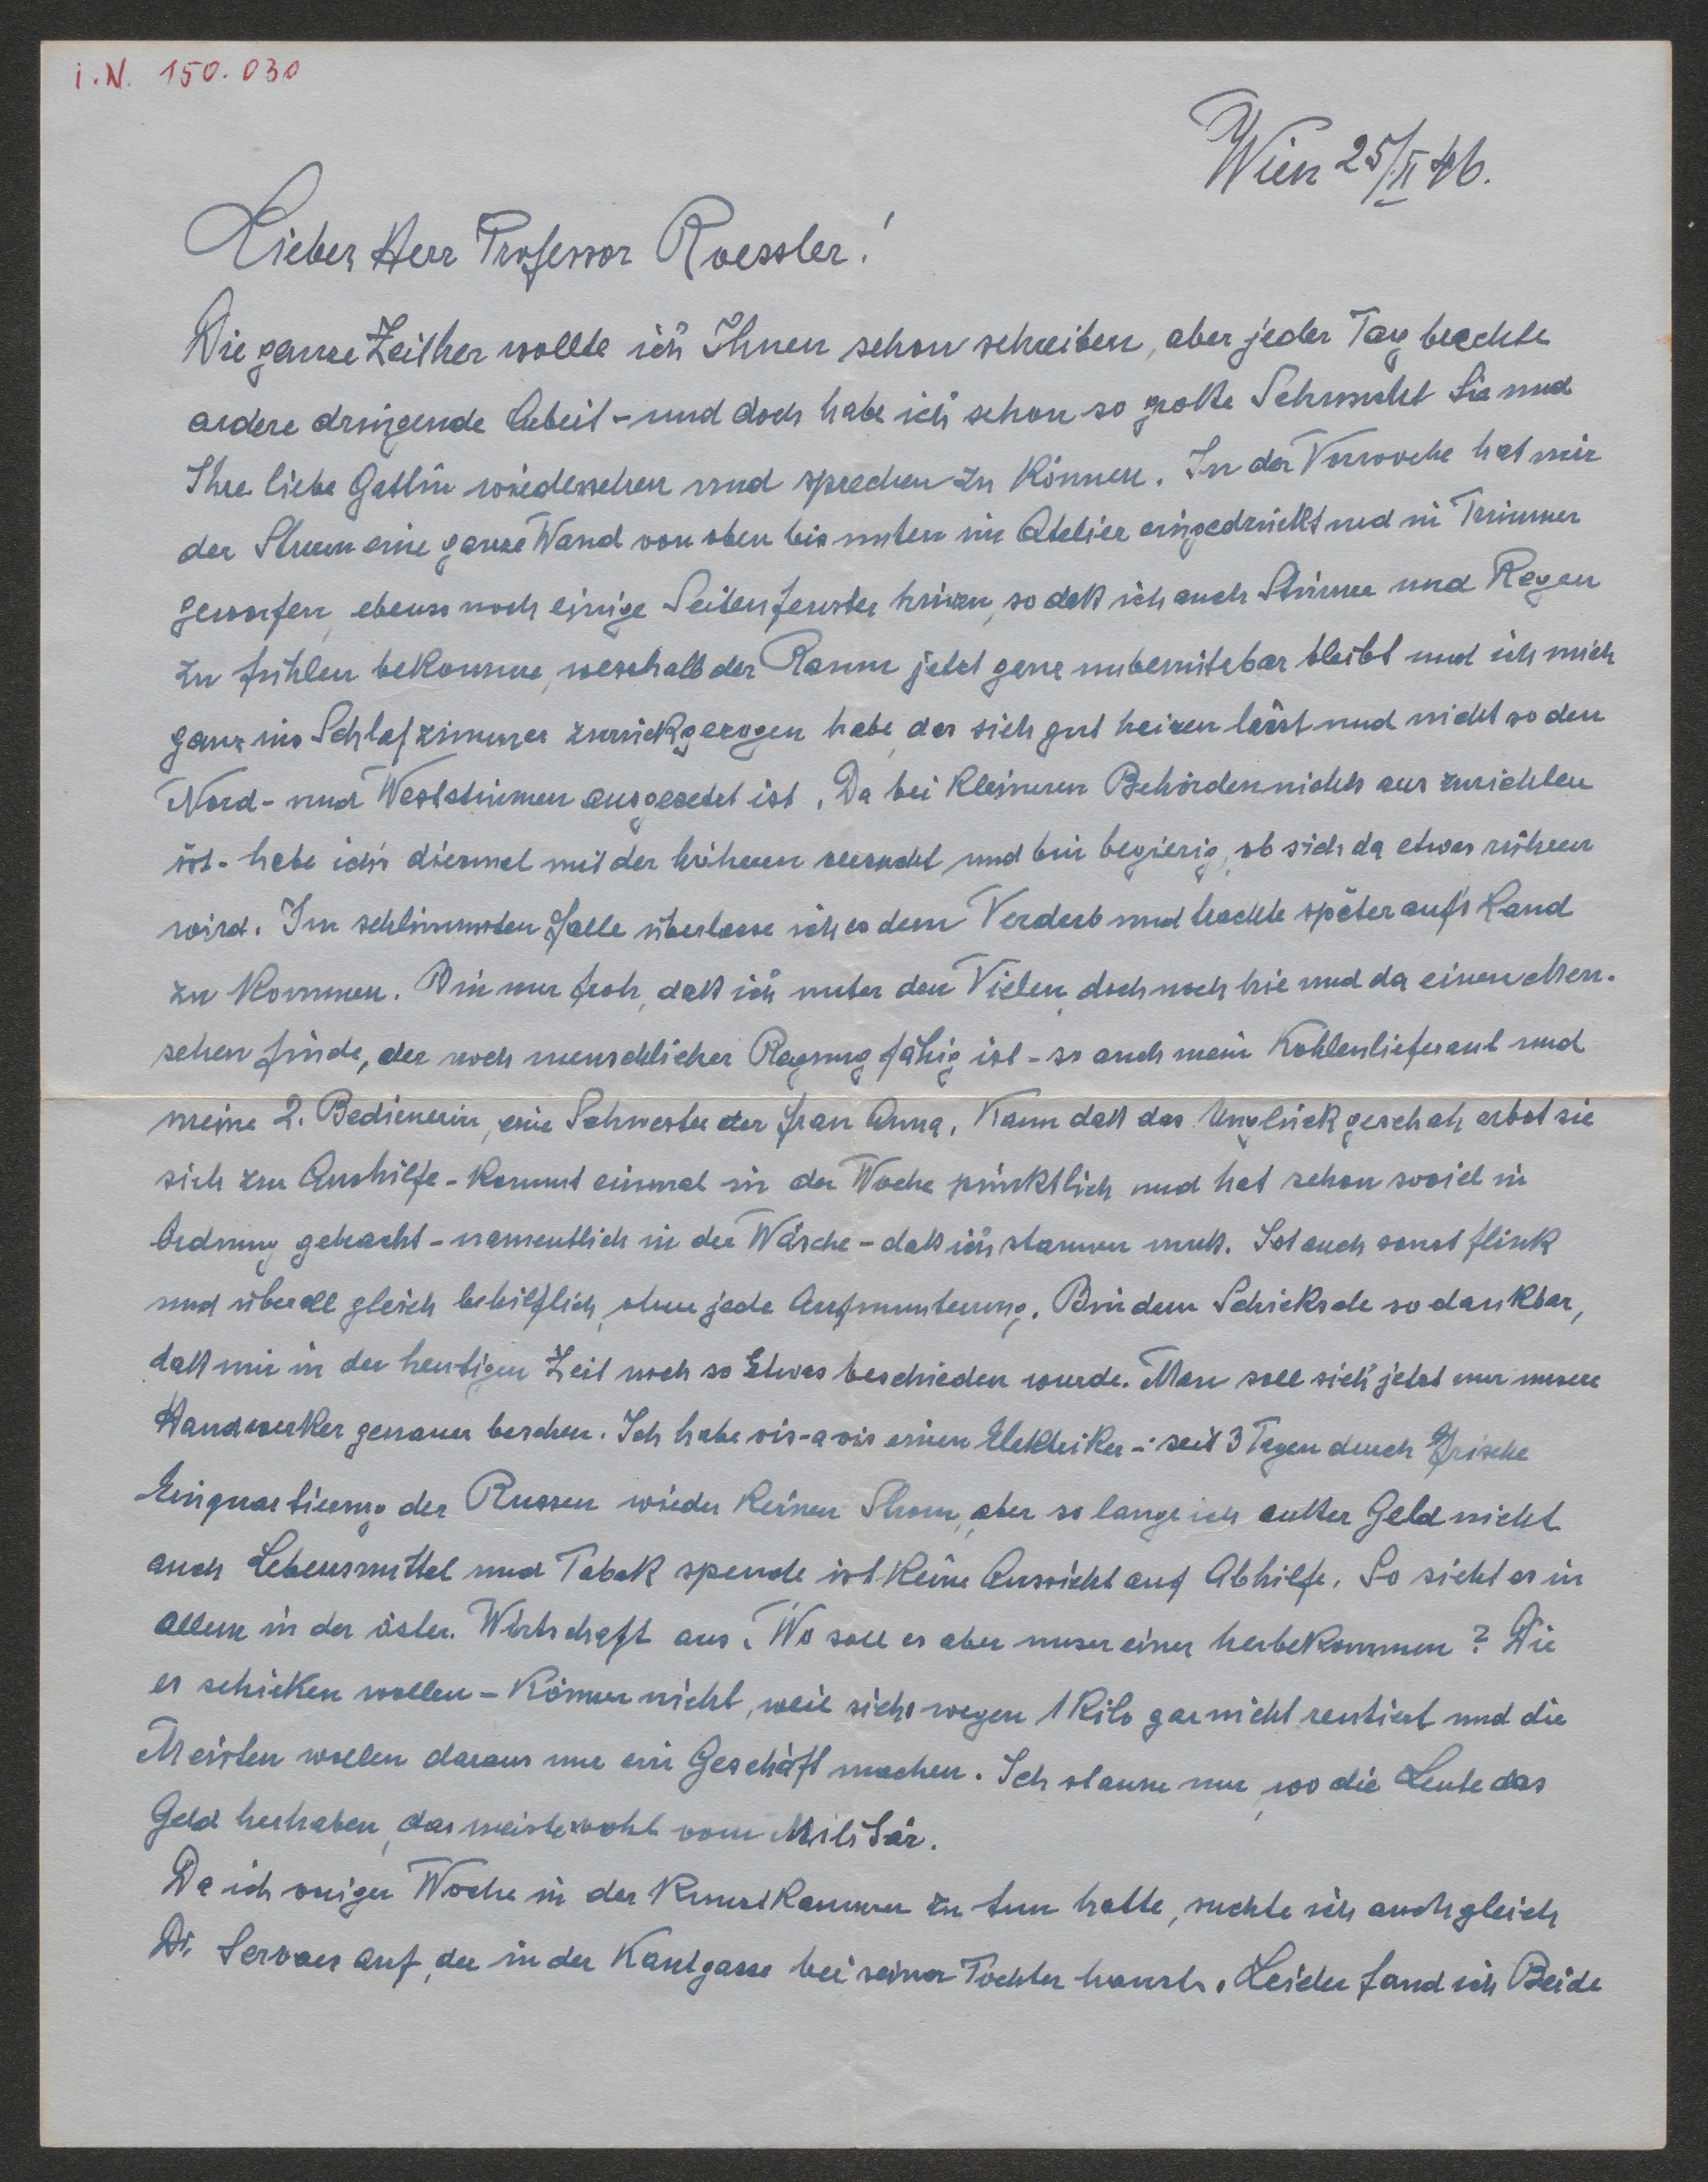 i.N. 150.030
Wien 25/II 46.
Lieber Herr Professor Roessler!
Die ganze Zeither wollte ich Ihnen schon schreiben, aber jeder Tag brachte
andere dringende Arbeit - und doch habe ich schon so große Sehnsucht Sie und
Ihre liebe Gattin wiedersehen und sprechen zu können. In der Vorwoche hat mir
der Sturm eine ganze Wand von oben bis unten im Atelier eingedrückt und in Trümmer
geworfen, ebenso noch einige Seitenfenster hinzu, so daß ich auch Stürme und Regen
zu fühlen bekomme, weshalb der Raum jetzt ganz unbenützbar bleibt und ich mich
ganz ins Schlafzimmer zurückgezogen habe, das sich gut heizen lässt und nicht so den
Nord- und Weststürmen ausgesetzt ist. Da bei kleineren Behörden nichts auszurichten
ist - habe ich's diesmal mit der höheren versucht und bin begierig, ob sich da etwas rühren
wird. Im schlimmsten Falle überlasse ich es dem Verderb und trachte später aufs Land
zu kommen. Bin nur froh, daß ich unter den Vielen doch noch hie und da einen Men-
schen finde, der noch menschlicher Regung fähig ist - so auch mein Kohlenlieferant und
meine 2. Bedienerin, eine Schwester der Frau Anna. Kaum daß das Unglück geschah erbot sie
sich zur Aushilfe - kommt einmal in der Woche pünktlich und hat schon soviel in
Ordnung gebracht - namentlich in der Wäsche - daß ich staunen muß. Ist auch sonst flink
und überall gleich behilflich, ohne jede Aufmunterung. Bin dem Schicksale so dankbar,
daß mir in der heutigen Zeit noch so Etwas beschieden wurde. Man soll sich jetzt nur unsere
Handwerker genauer besehen. Ich habe vis-a vis einen Elektriker - seit 3 Tagen durch frische
Einquartierung der Russen wieder keinen Strom, aber so lange ich außer Geld nicht
auch Lebensmittel und Tabak spende ist keine Aussicht auf Abhilfe. So sieht es in
allem in der öster. Wirtschaft aus. Wo soll es aber unser einer herbekommen? Die
es schicken wollen - können nicht, weil sichs wegen 1 Kilo gar nicht rentiert und die
Meisten wollen daraus nur ein Geschäft machen. Ich staune nur, wo die Leute das
Geld herhaben, das meiste wohl vom Militär.
Da ich voriger Woche in der Kunstkammer zu tun hatte, suchte ich auch gleich
Dr Servaes auf, der in der Kantgasse bei seiner Tochter haust. Leider fand ich Beide